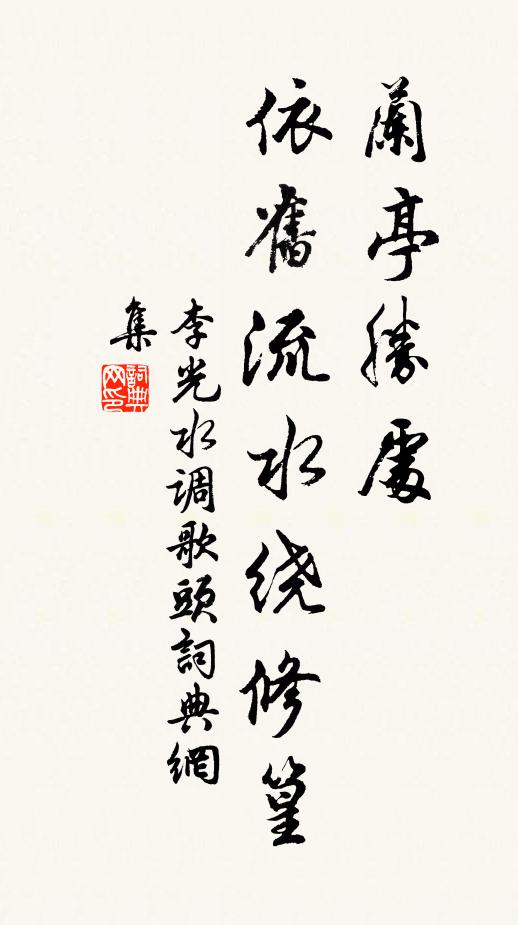 蘭亭勝處
依舊流水绕修篁
李光水调歌頭詞典網
集
詞典网印